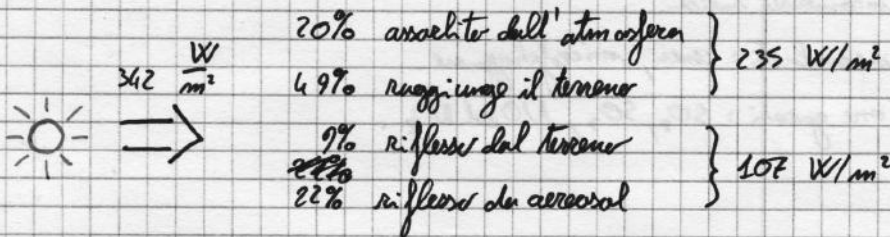 342 W/m²
20% assorbito dall'atmosfera
49% raggiunge il terreno
235 W/m²
9% riflesso dal terreno
22% riflesso da aereosol
107 W/m²